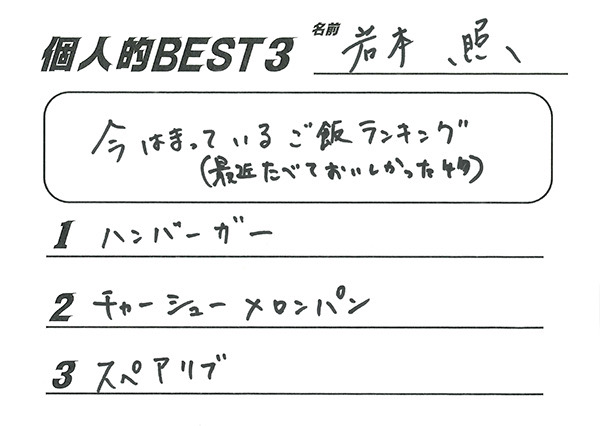 個人的BEST3
名前 岩本 照
今はまっているご飯ランキング
(最近たべておいしかった物)
1 ハンバーガー
2 チャーシューメロンパン
3 スペアリブ